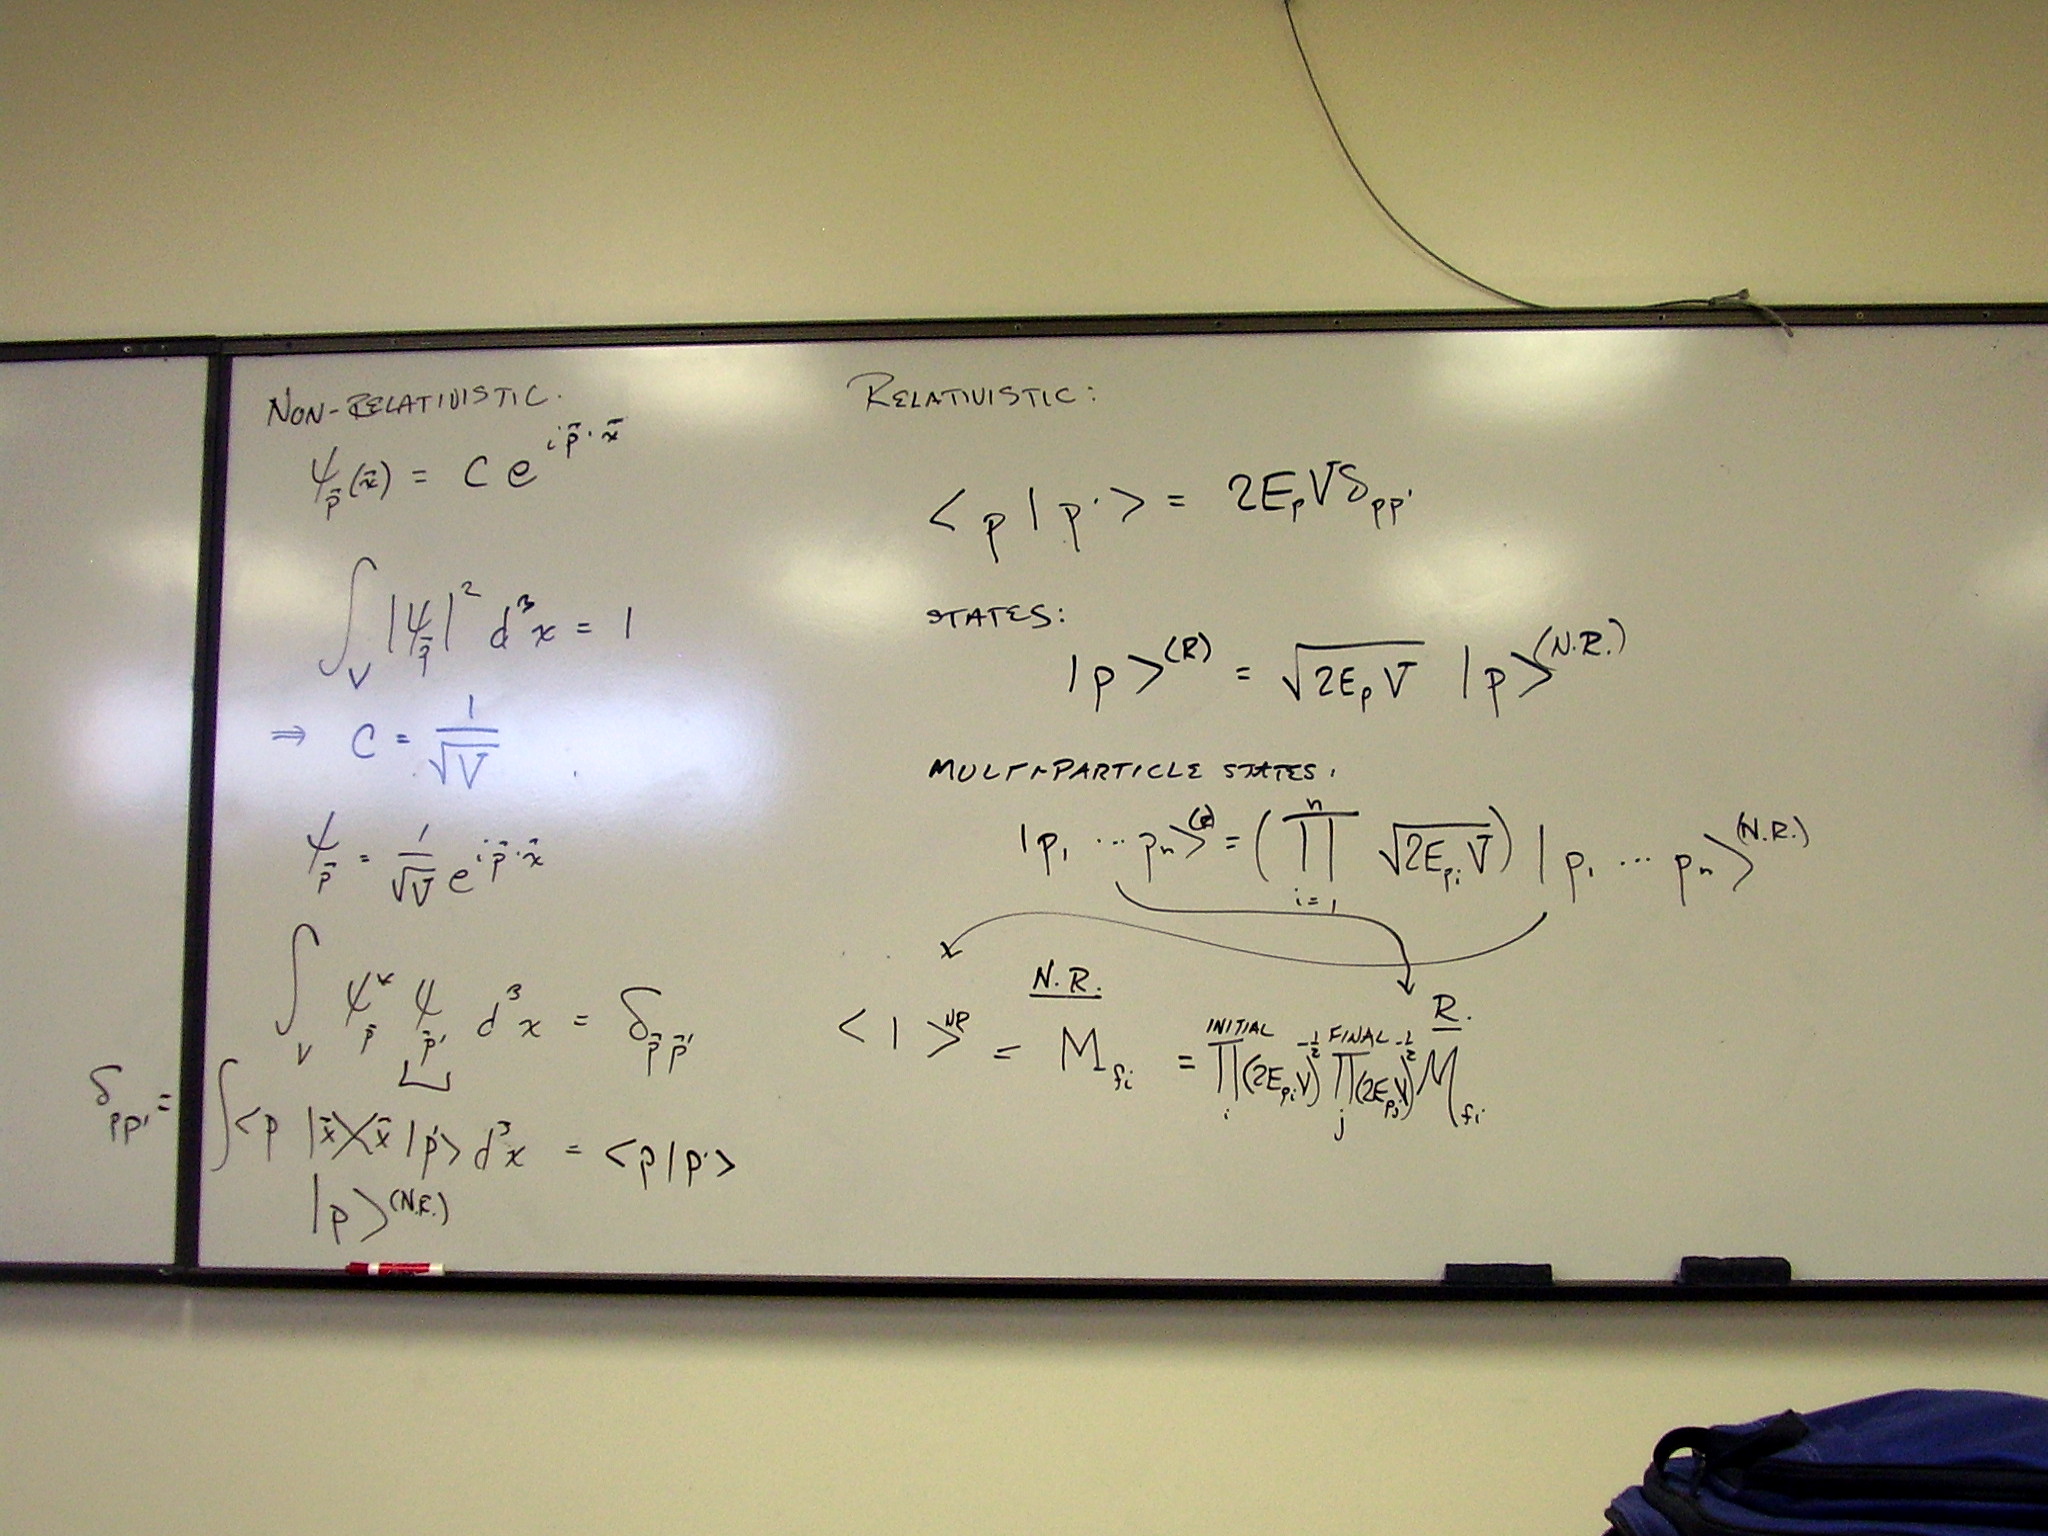 NON-RELATIVISTIC.
ψ_p⃗(x⃗) = C e^{i p⃗·x⃗}
∫_V |ψ_p⃗|² d³x = 1
⇒ C = 1/√V
ψ_p⃗ = 1/√V e^{i p⃗·x⃗}
∫_V ψ*_p⃗ ψ_p⃗' d³x = δ_p⃗p⃗'
δ_pp' = ∫<p|x⃗><x⃗|p'> d³x = <p|p'>
|p>^(N.R.)
RELATIVISTIC:
<p|p'> = 2E_p V δ_pp'
STATES:
|p>^(R) = √(2E_p V) |p>^(N.R.)
MULTI-PARTICLE STATES.
|p₁ ... pₙ>^(R) = (∏_{i=1}^n √(2E_{p_i} V)) |p₁ ... pₙ>^(N.R.)
N.R. R.
INITIAL FINAL
< | >^NR = M_fi = ∏_i (2E_{p_i}V)^{-1/2} ∏_j (2E_{p_j}V)^{-1/2} ℳ_fi